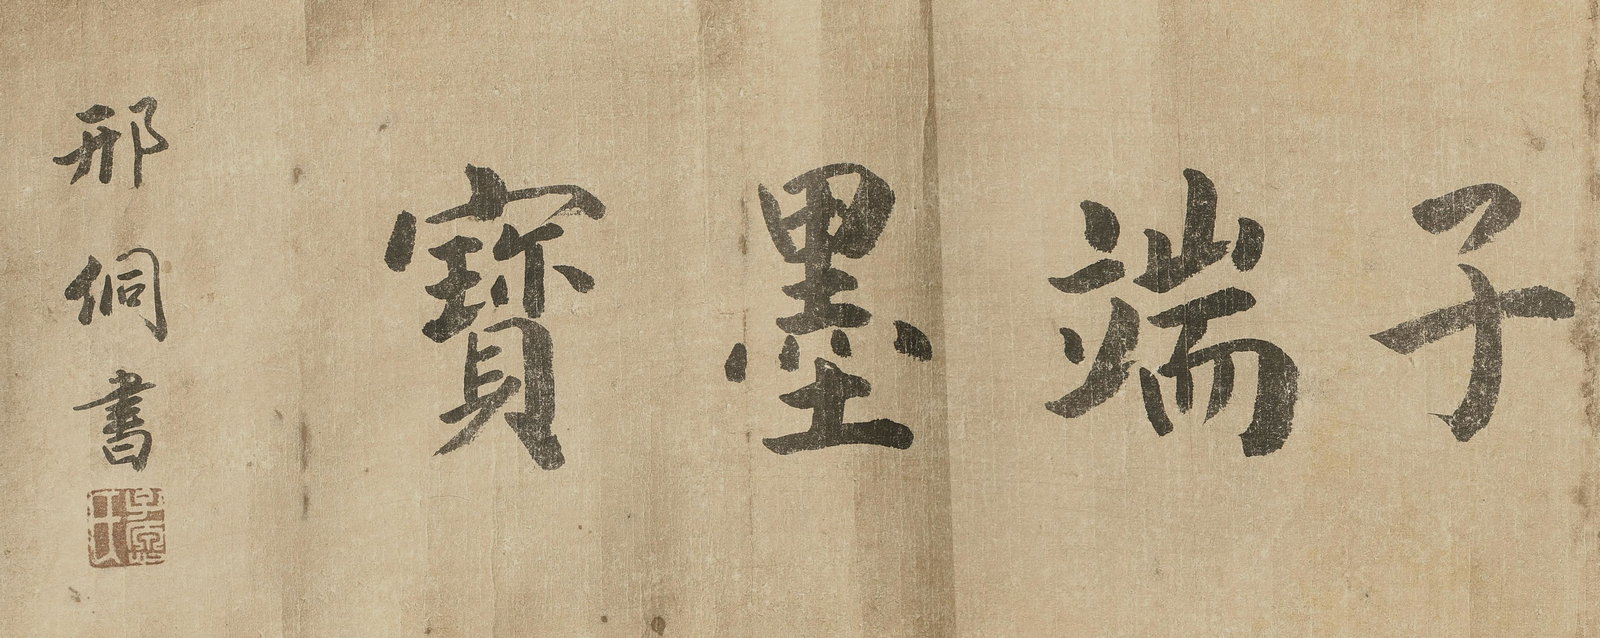 子端墨寶
邢侗書